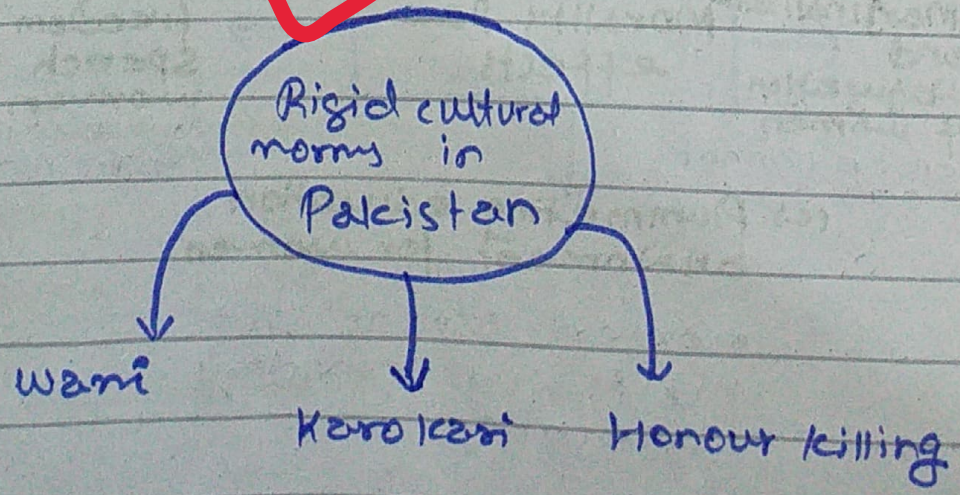 Rigid cultural
norms in
Pakistan
wani
Karo kari
Honour killing